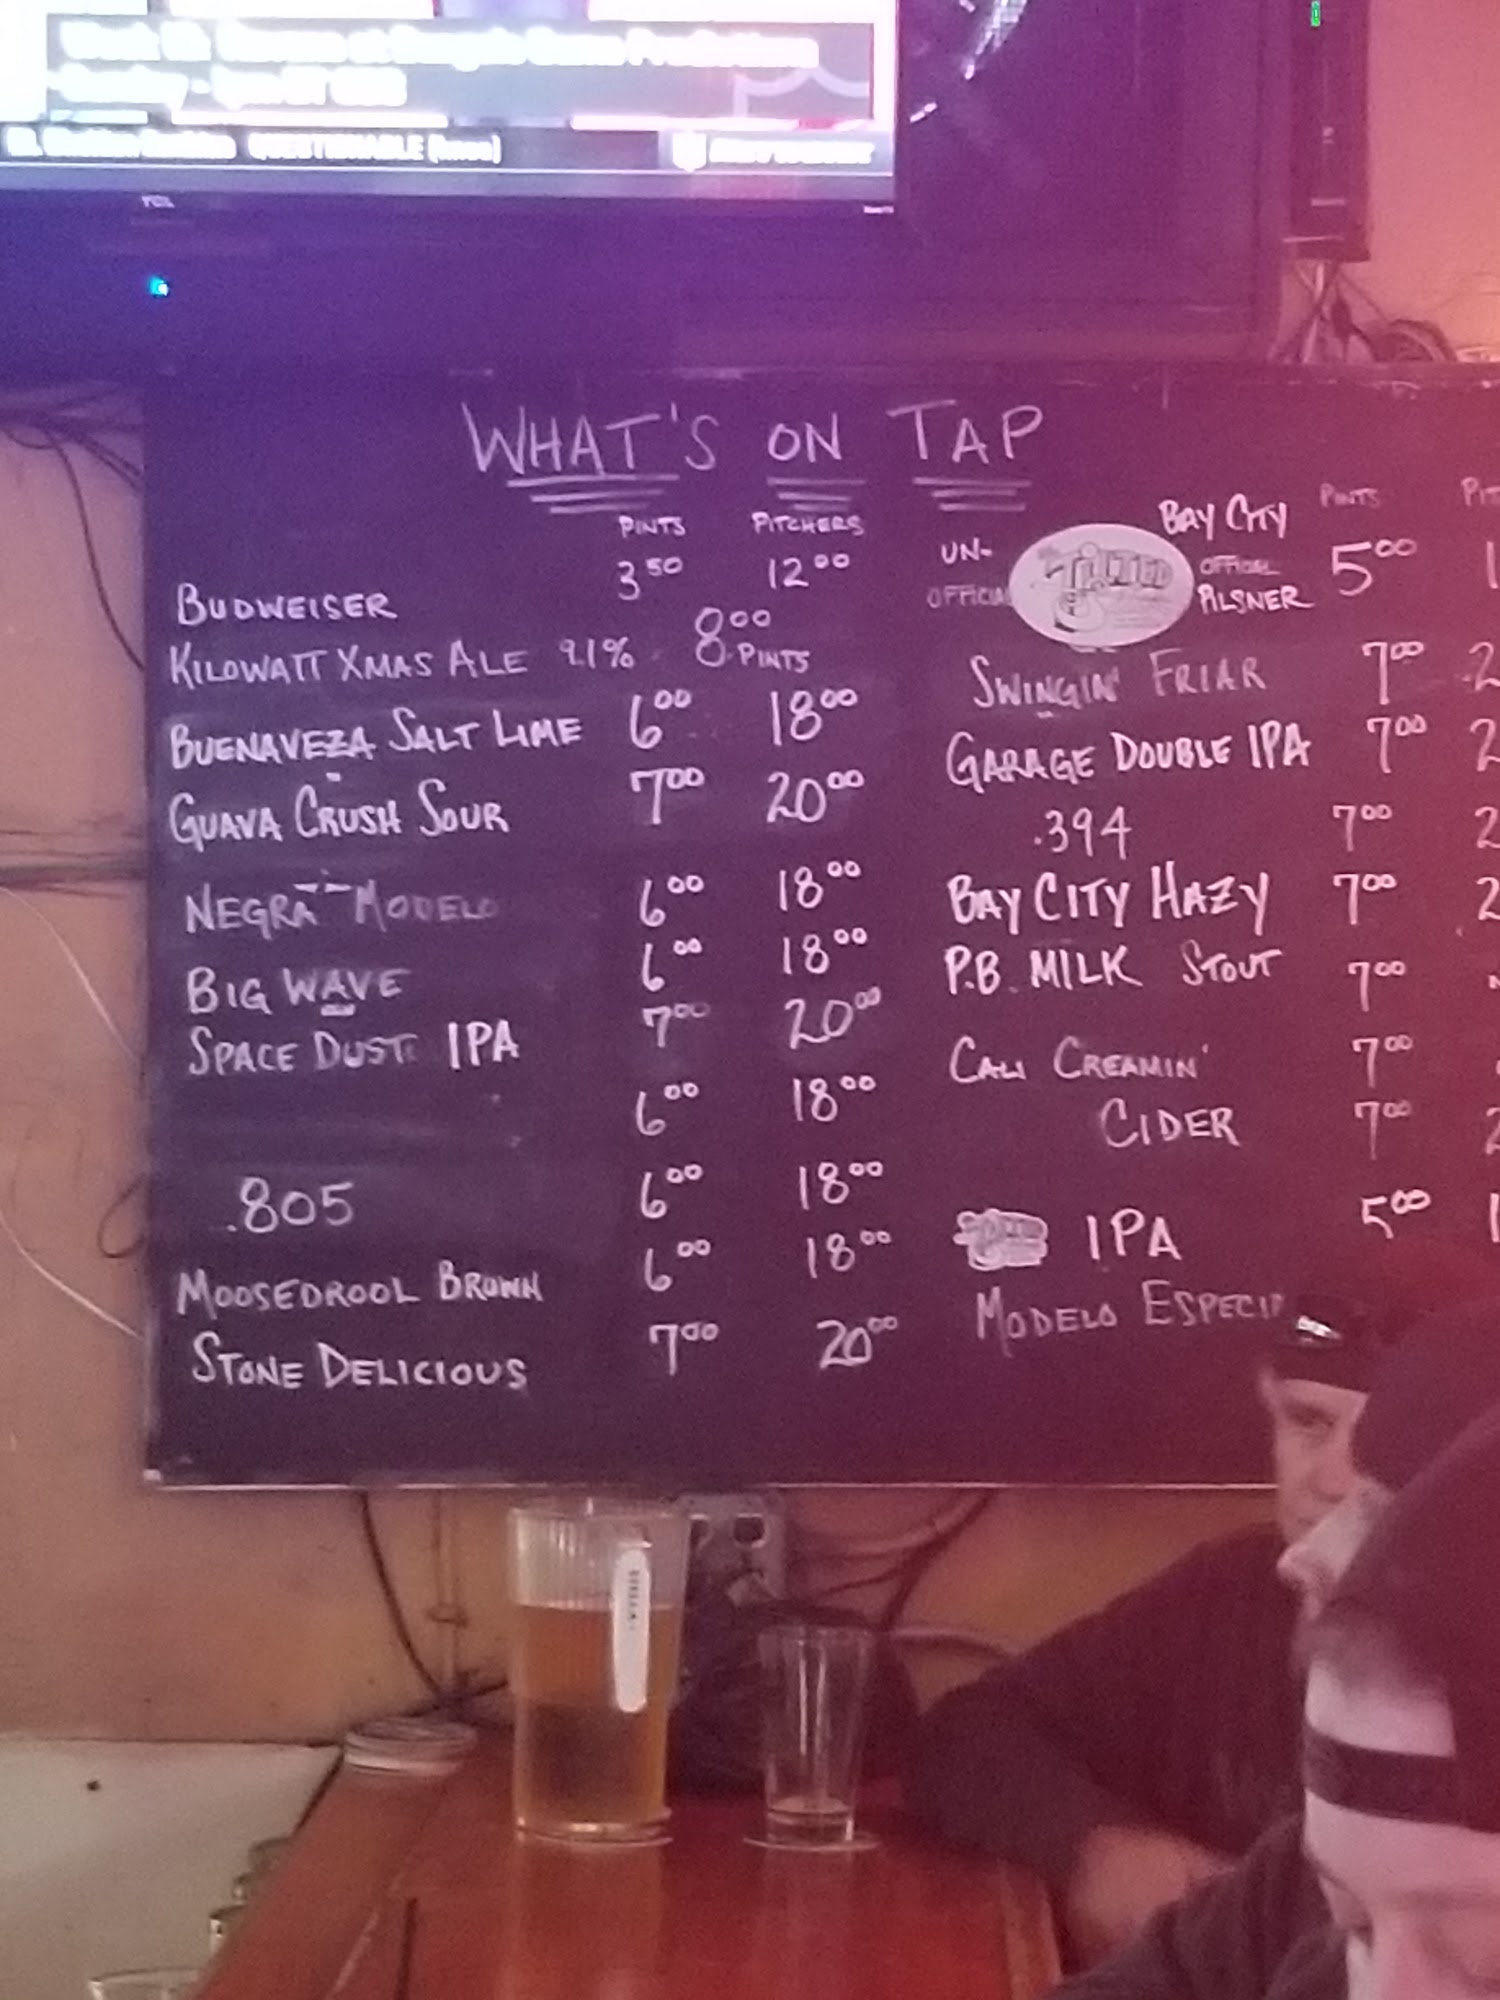 QUESTIONABLE (knee)
TCL
WHAT'S ON TAP
PINTS PITCHERS
BUDWEISER 3.50 12.00
KILOWATT XMAS ALE 9.1% 8.00 PINTS
BUENAVEZA SALT LIME 6.00 18.00
GUAVA CRUSH SOUR 7.00 20.00
NEGRA MODELO 6.00 18.00
BIG WAVE 6.00 18.00
SPACE DUST IPA 7.00 20.00
6.00 18.00
.805 6.00 18.00
MOOSEDROOL BROWN 6.00 18.00
STONE DELICIOUS 7.00 20.00
PINTS PIT
UN-OFFICIAL TILTED BAY CITY OFFICIAL PILSNER 5.00 1
SWINGIN' FRIAR 7.00 2
GARAGE DOUBLE IPA 7.00 2
.394 7.00 2
BAY CITY HAZY 7.00 2
P.B. MILK STOUT 7.00
CALI CREAMIN' 7.00
CIDER 7.00 2
IPA 5.00 1
MODELO ESPECI